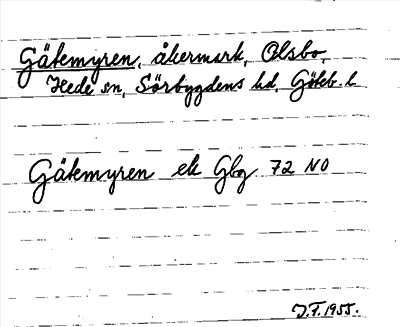 Gätemyren, åkermark, Olsbo,
Hede sn, Sörbygdens hd, Göteb. l.
Gätemyren ek Gbg 72 NO
J.F. 1955.